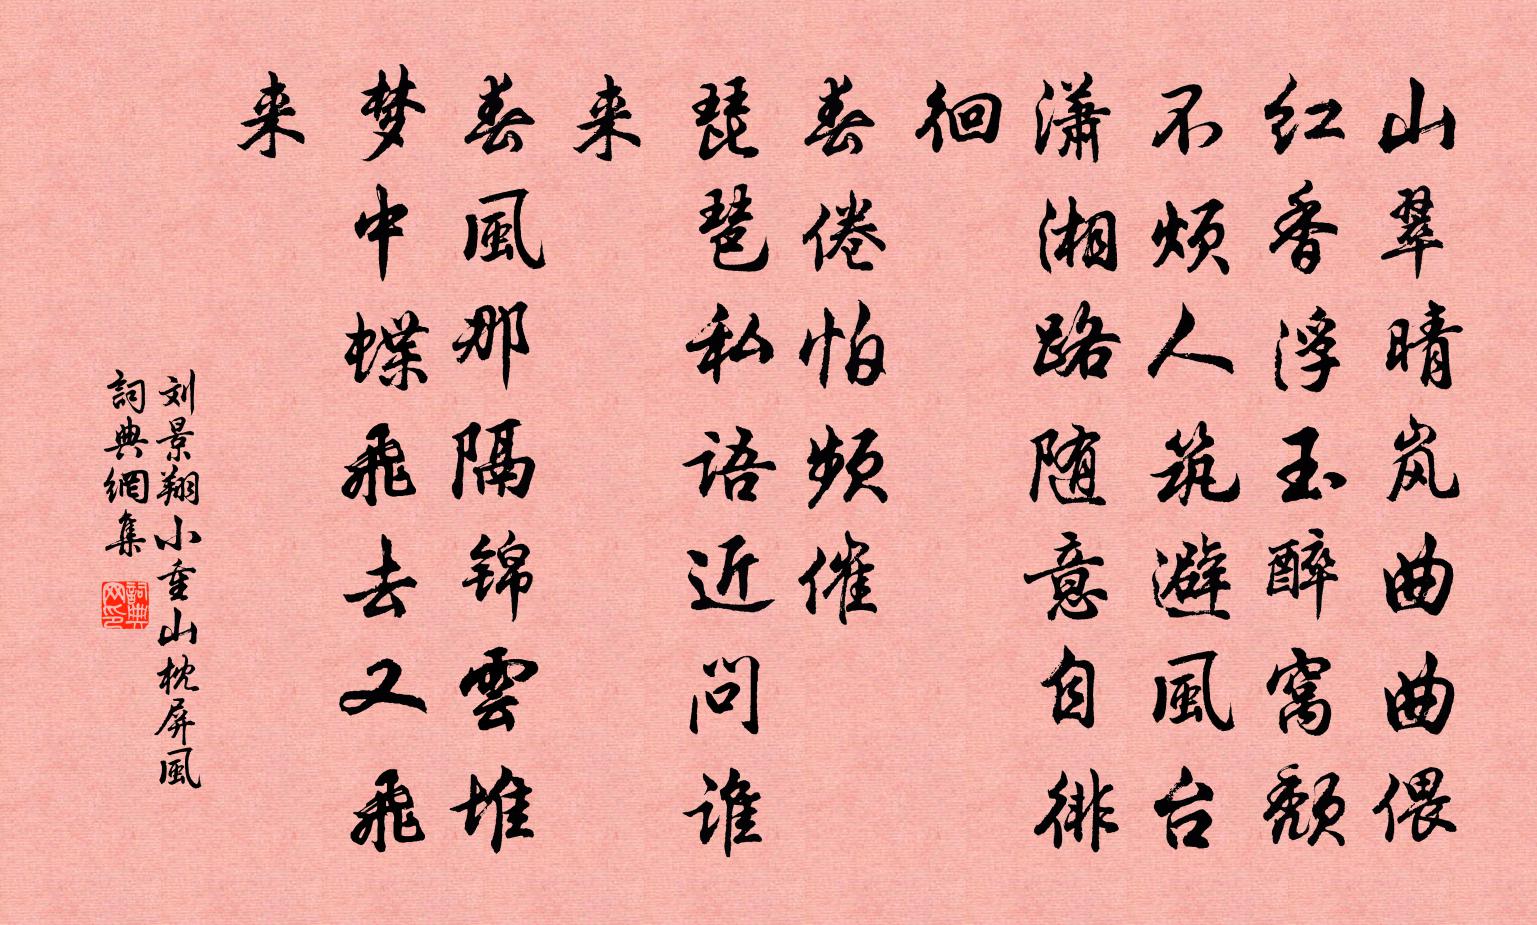 山翠晴岚曲曲偎
红香浮玉醉窝颓
不烦人筑避風台
瀟湘路随意自徘
徊
春倦怕频催
琵琶私语近问谁
来
春風那隔锦雲堆
梦中蝶飛去又飛
来
刘景翔小重山枕屏風
詞典網集
詞典网印